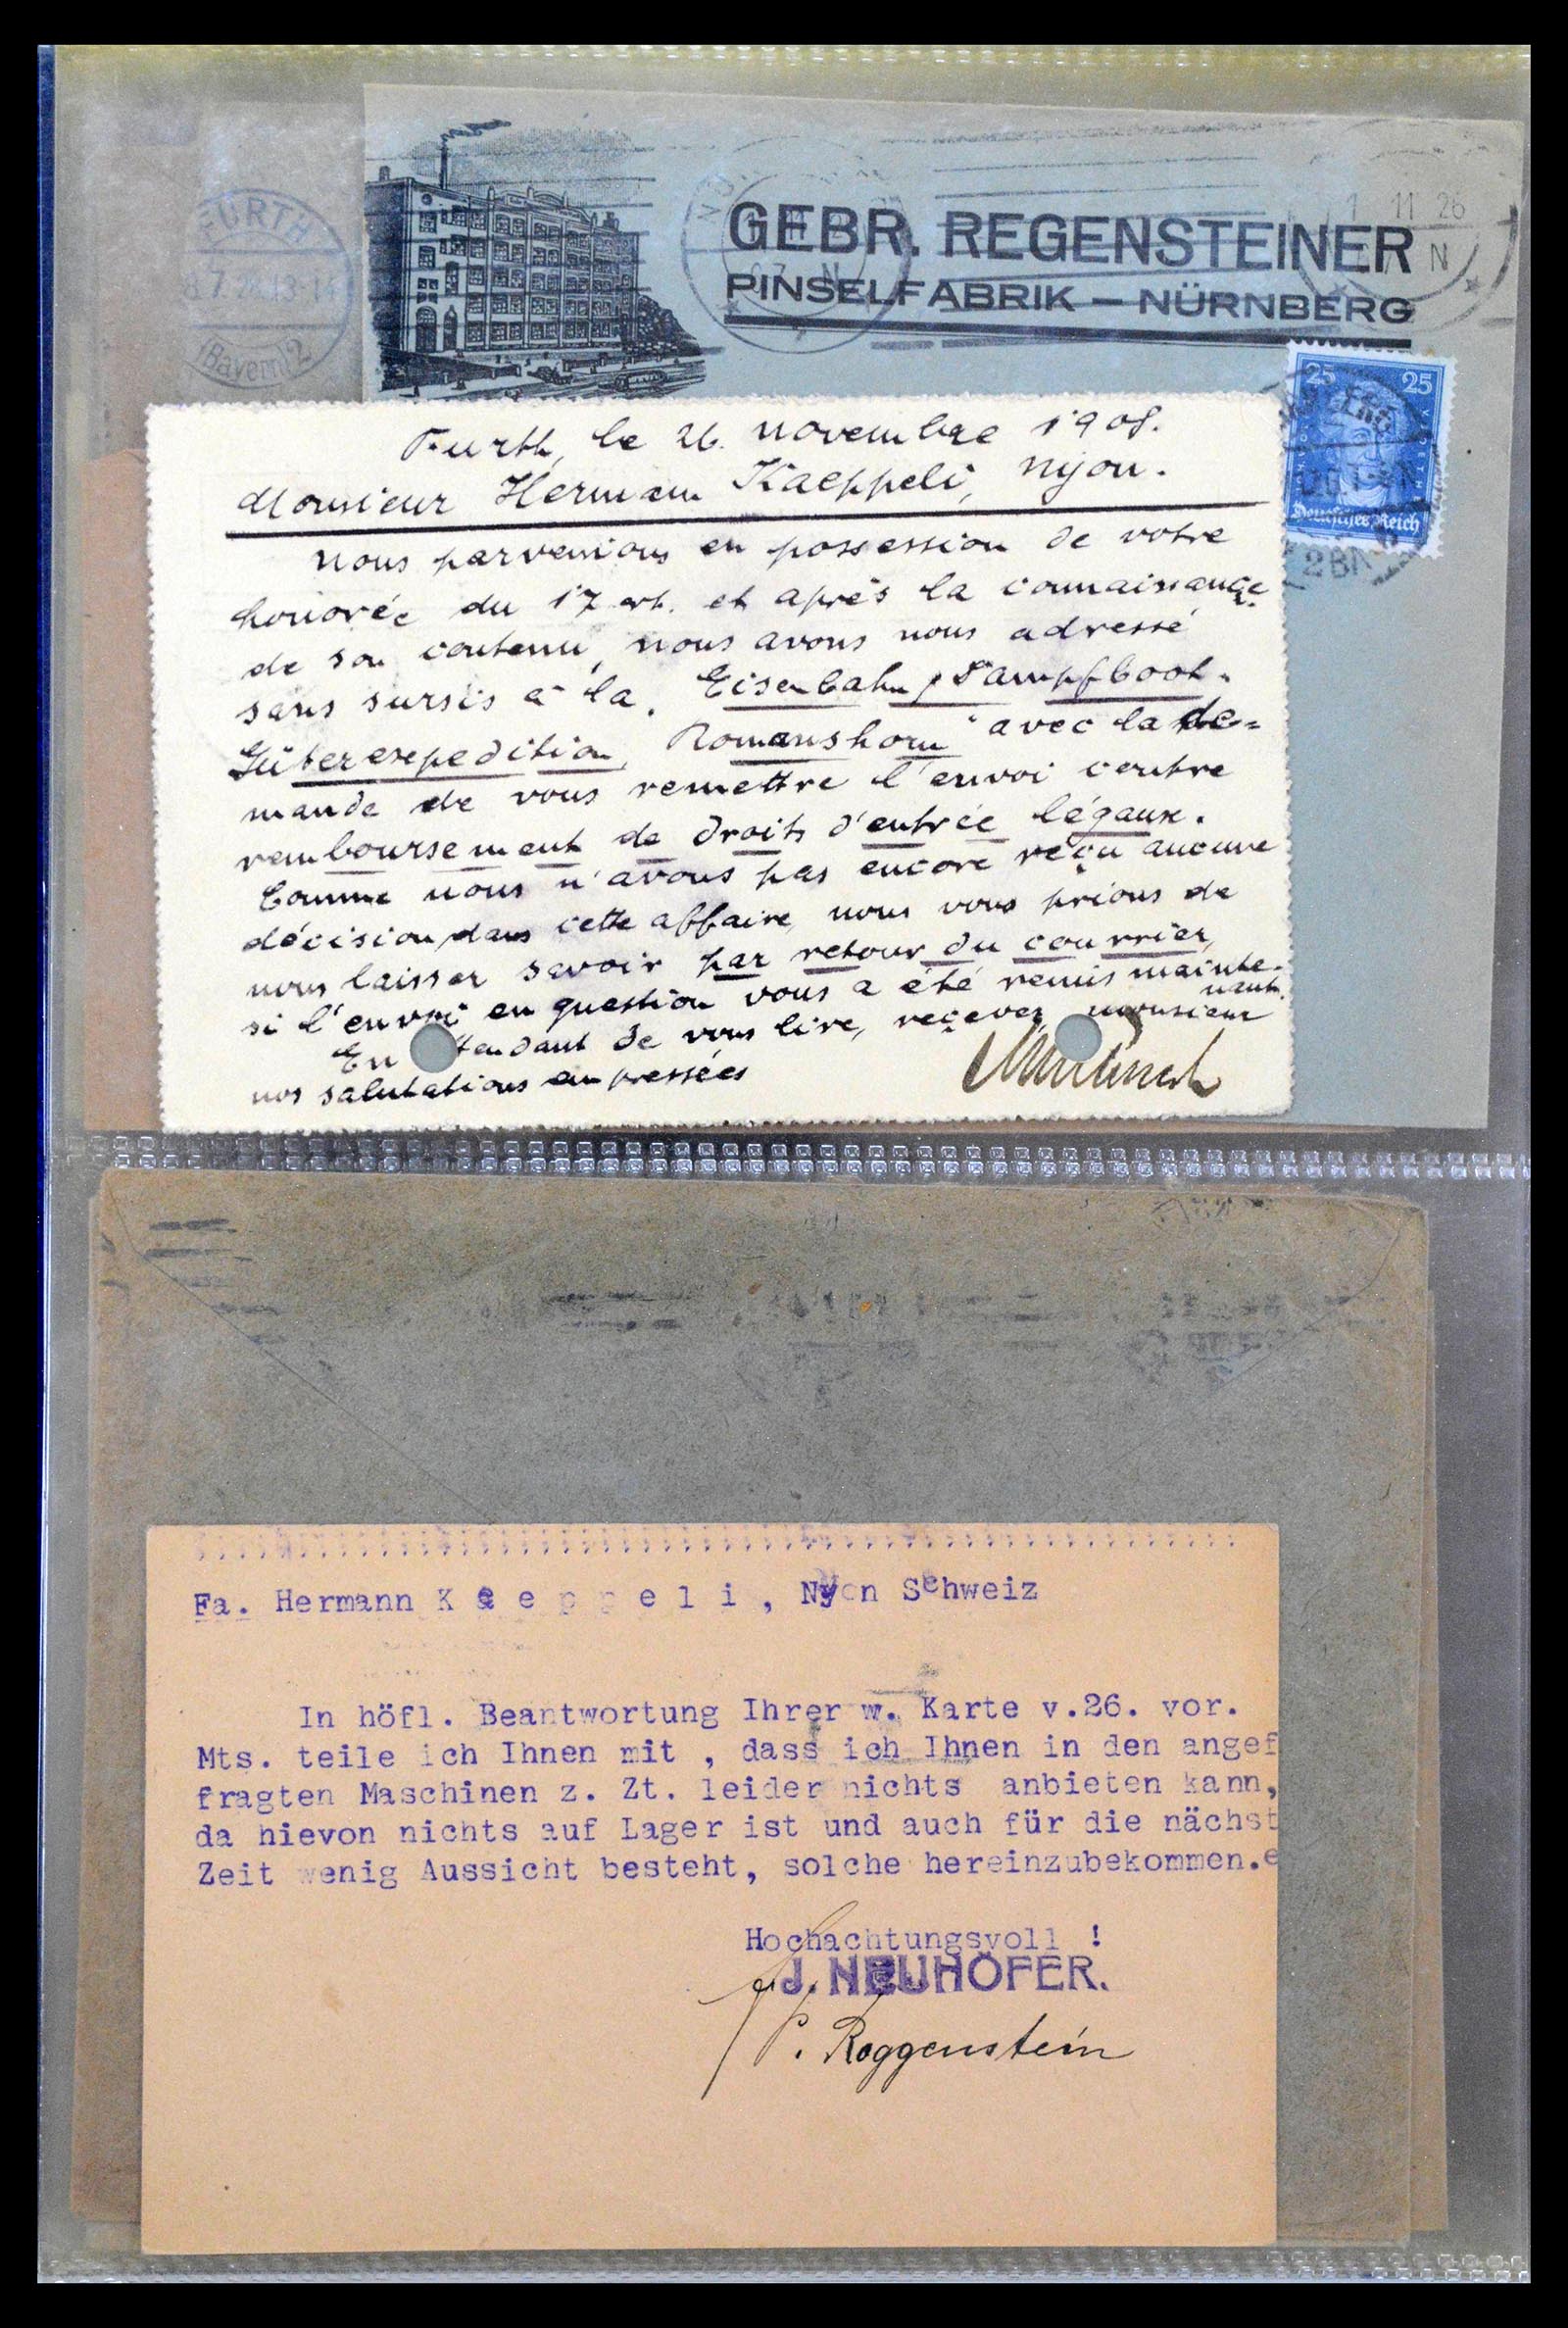 GEBR. REGENSTEINER
PINSELFABRIK — NÜRNBERG
FÜRTH
(Bayern) 2
1 11 26
N
25 25
Deutsches Reich
Furth, le 26. novembre 1908.
Monsieur Hermann Kaeppeli, Nyon.
Nous parvenions en possession de votre
honorée du 17 crt. et après la connaissance
de son contenu, nous avons nous adressé
sans sursis à la „Eisenbahn & Dampfboot-
Güterexepedition, Romanshorn" avec la de=
mande de vous remettre l'envoi contre
remboursement de droits d'entrée légaux.
Comme nous n'avons pas encore reçu aucune
décision, dans cette affaire, nous vous prions de
nous laisser savoir par retour du courrier,
si l'envoi en question vous a été remis mainte-
nant.
En tendant de vous lire, recevez, monsieur
nos salutations empressées
Fa. Hermann K a e p p e l i , Nyon Schweiz
In höfl. Beantwortung Ihrer w. Karte v.26. vor.
Mts. teile ich Ihnen mit , dass ich Ihnen in den angef
fragten Maschinen z. Zt. leider nichts anbieten kann,
da hievon nichts auf Lager ist und auch für die nächst
Zeit wenig Aussicht besteht, solche hereinzubekommen.e
Hochachtungsvoll !
J. NEUHÖFER.
P. Roggenstein